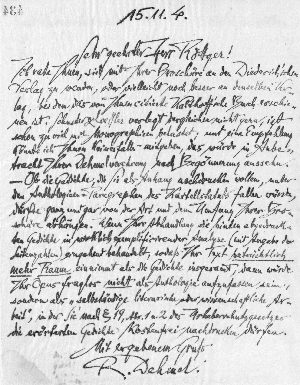 15.11.4.
Sehr geehrter Herr Röttger!
Ich rate Ihnen, sich mit Ihrer Broschüre an den Diederichs'schen
Verlag zu wenden, oder vielleicht noch besser an denselben Ver-
lag, bei dem das von Ihnen citierte Buch erschie-
nen ist. Schuster & Loeffler verlegt dergleichen nicht gern, ist
schon zu viel mit Monographien belastet, und eine Empfehlung
könnte ich Ihnen keinesfalls mitgeben, das würde in Anbe-
tracht Ihrer Dehmelverehrung nach Begönnerung aussehn.
— Ob die Gedichte, die Sie als Anhang abdrucken wollen, unter
den Anthologien-Paragraphen des Kartellstatuts fallen würden,
dürfte ganz und gar von der Art und dem Umfang Ihrer Bro-
schüre abhängen. Wenn Ihre Abhandlung die hinten abgedruck-
ten Gedichte in wirklich exemplifizierender Analyse (mit Angabe der
Seitenzahlen) eingehend behandelt, sodaß Ihr Text beträchtlich
mehr Raum einnimmt als die Gedichte insgesamt, dann würde
Ihr Opus fraglos nicht als Anthologie aufzufassen sein,
sondern als „selbständige literarische oder wissenschaftliche Ar-
beit", in der Sie nach § 19, Abs. 1 u. 2 des Urheberrechtsgesetzes
die erörterten Gedichte kostenfrei nachdrucken dürfen.
Mit ergebenem Gruß
R. Dehmel.